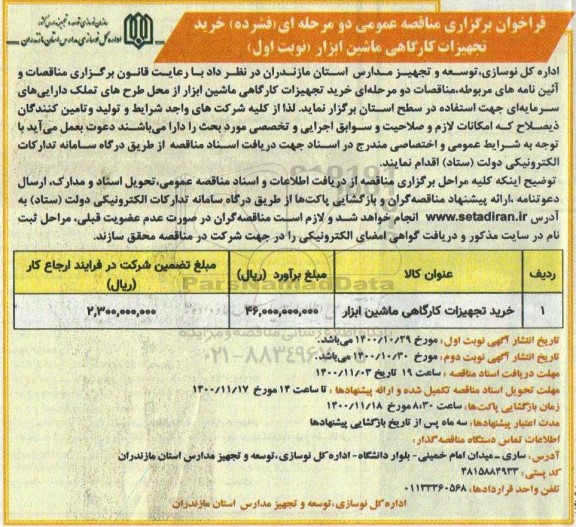 فراخوان برگزاری مناقصه عمومی دو مرحله ای (فشرده) خرید
تجهیزات کارگاهی ماشین ابزار (نوبت اول)
اداره کل نوسازی، توسعه و تجهیز مدارس استان مازندران
اداره کل نوسازی،توسعه و تجهیـز مـدارس استان مازنـدران در نظر داد با رعایت قانون برگزاری مناقصات و
آئین نامه های مربوطه،مناقصات دو مرحله‌ای خرید تجهیزات کارگاهی ماشین ابزار از محل طرح های تملک دارایی‌های
سرمایه‌ای جهت استفاده در سطح استان برگزار نماید. لذا از کلیه شرکت های واجد شرایط و تولید وتامین کنندگان
ذیصلاح کـه امکانات لازم و صلاحیت و سوابق اجرایی و تخصصی مورد بحث را دارا می‌باشند دعوت بعمل می‌آید با
توجه به شرایط عمومی و اختصاصی مندرج در اسناد جهت دریافت اسناد مناقصه از طریق درگاه سامانه تدارکات
الکترونیکی دولت (ستاد) اقدام نمایند.
توضیح اینکه کلیه مراحل برگزاری مناقصه از دریافت اطلاعات و اسناد مناقصه عمومی،تحویل اسناد و مدارک، ارسال
دعوتنامه ،ارائه پیشنهاد مناقصه‌گران و بازگشایی پاکت‌ها از طریق درگاه سامانه تدارکات الکترونیکی دولت (ستاد) به
آدرس www.setadiran.ir انجام خواهد شـد و لازم اسـت مناقصه‌گران در صورت عدم عضویت قبلی، مراحل ثبت
نام در سایت مذکور و دریافت گواهی امضای الکترونیکی را در جهت شرکت در مناقصه محقق سازند.
ردیف | عنوان کالا | مبلغ برآورد (ریال) | مبلغ تضمین شرکت در فرایند ارجاع کار (ریال)
۱ | خرید تجهیزات کارگاهی ماشین ابزار | ۴۶,۰۰۰,۰۰۰,۰۰۰ | ۲,۳۰۰,۰۰۰,۰۰۰
تاریخ انتشار آگهی نوبت اول: مورخ ۱۴۰۰/۱۰/۲۹ می‌باشد.
تاریخ انتشار آگهی نوبت دوم: مورخ ۱۴۰۰/۱۰/۳۰ می‌باشد.
مهلت دریافت اسناد مناقصه : ساعت ۱۹ تاریخ ۱۴۰۰/۱۱/۰۳
مهلت تحویل اسناد مناقصه تکمیل شده و ارائه پیشنهادها : تا ساعت ۱۴ مورخ ۱۴۰۰/۱۱/۱۷
زمان بازگشایی پاکت‌ها: ساعت ۸:۳۰ مورخ ۱۴۰۰/۱۱/۱۸
مدت اعتبار پیشنهادها: سه ماه پس از تاریخ بازگشایی پیشنهادها
اطلاعات تماس دستگاه مناقصه‌گذار:
آدرس: ساری ـ میدان امام خمینی- بلوار دانشگاه- اداره کل نوسازی،توسعه و تجهیز مدارس استان مازندران
کد پستی: ۴۸۱۵۸۸۴۹۳۳
تلفن واحد قراردادها: ۰۱۱۳۳۳۶۰۵۶۸
اداره کل نوسازی،توسعه و تجهیز مدارس استان مازندران
ParsNamadData
پایگاه اطلاع رسانی مناقصه و مزایده